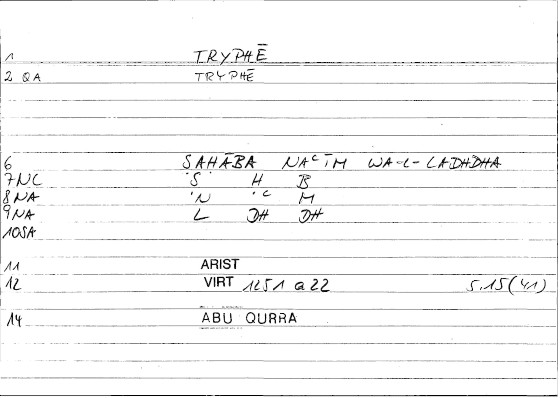 1 TRYPHĒ
2 QA TRYPHĒ
6 SAHĀBA NAᶜĪM WA-L-LADHDHA
7NC 'S' H B
8NA 'N 'ᶜ M
9NA L DH DH
10SA
11 ARIST
12 VIRT 1251 a22 5.15(41)
14 ABU QURRA